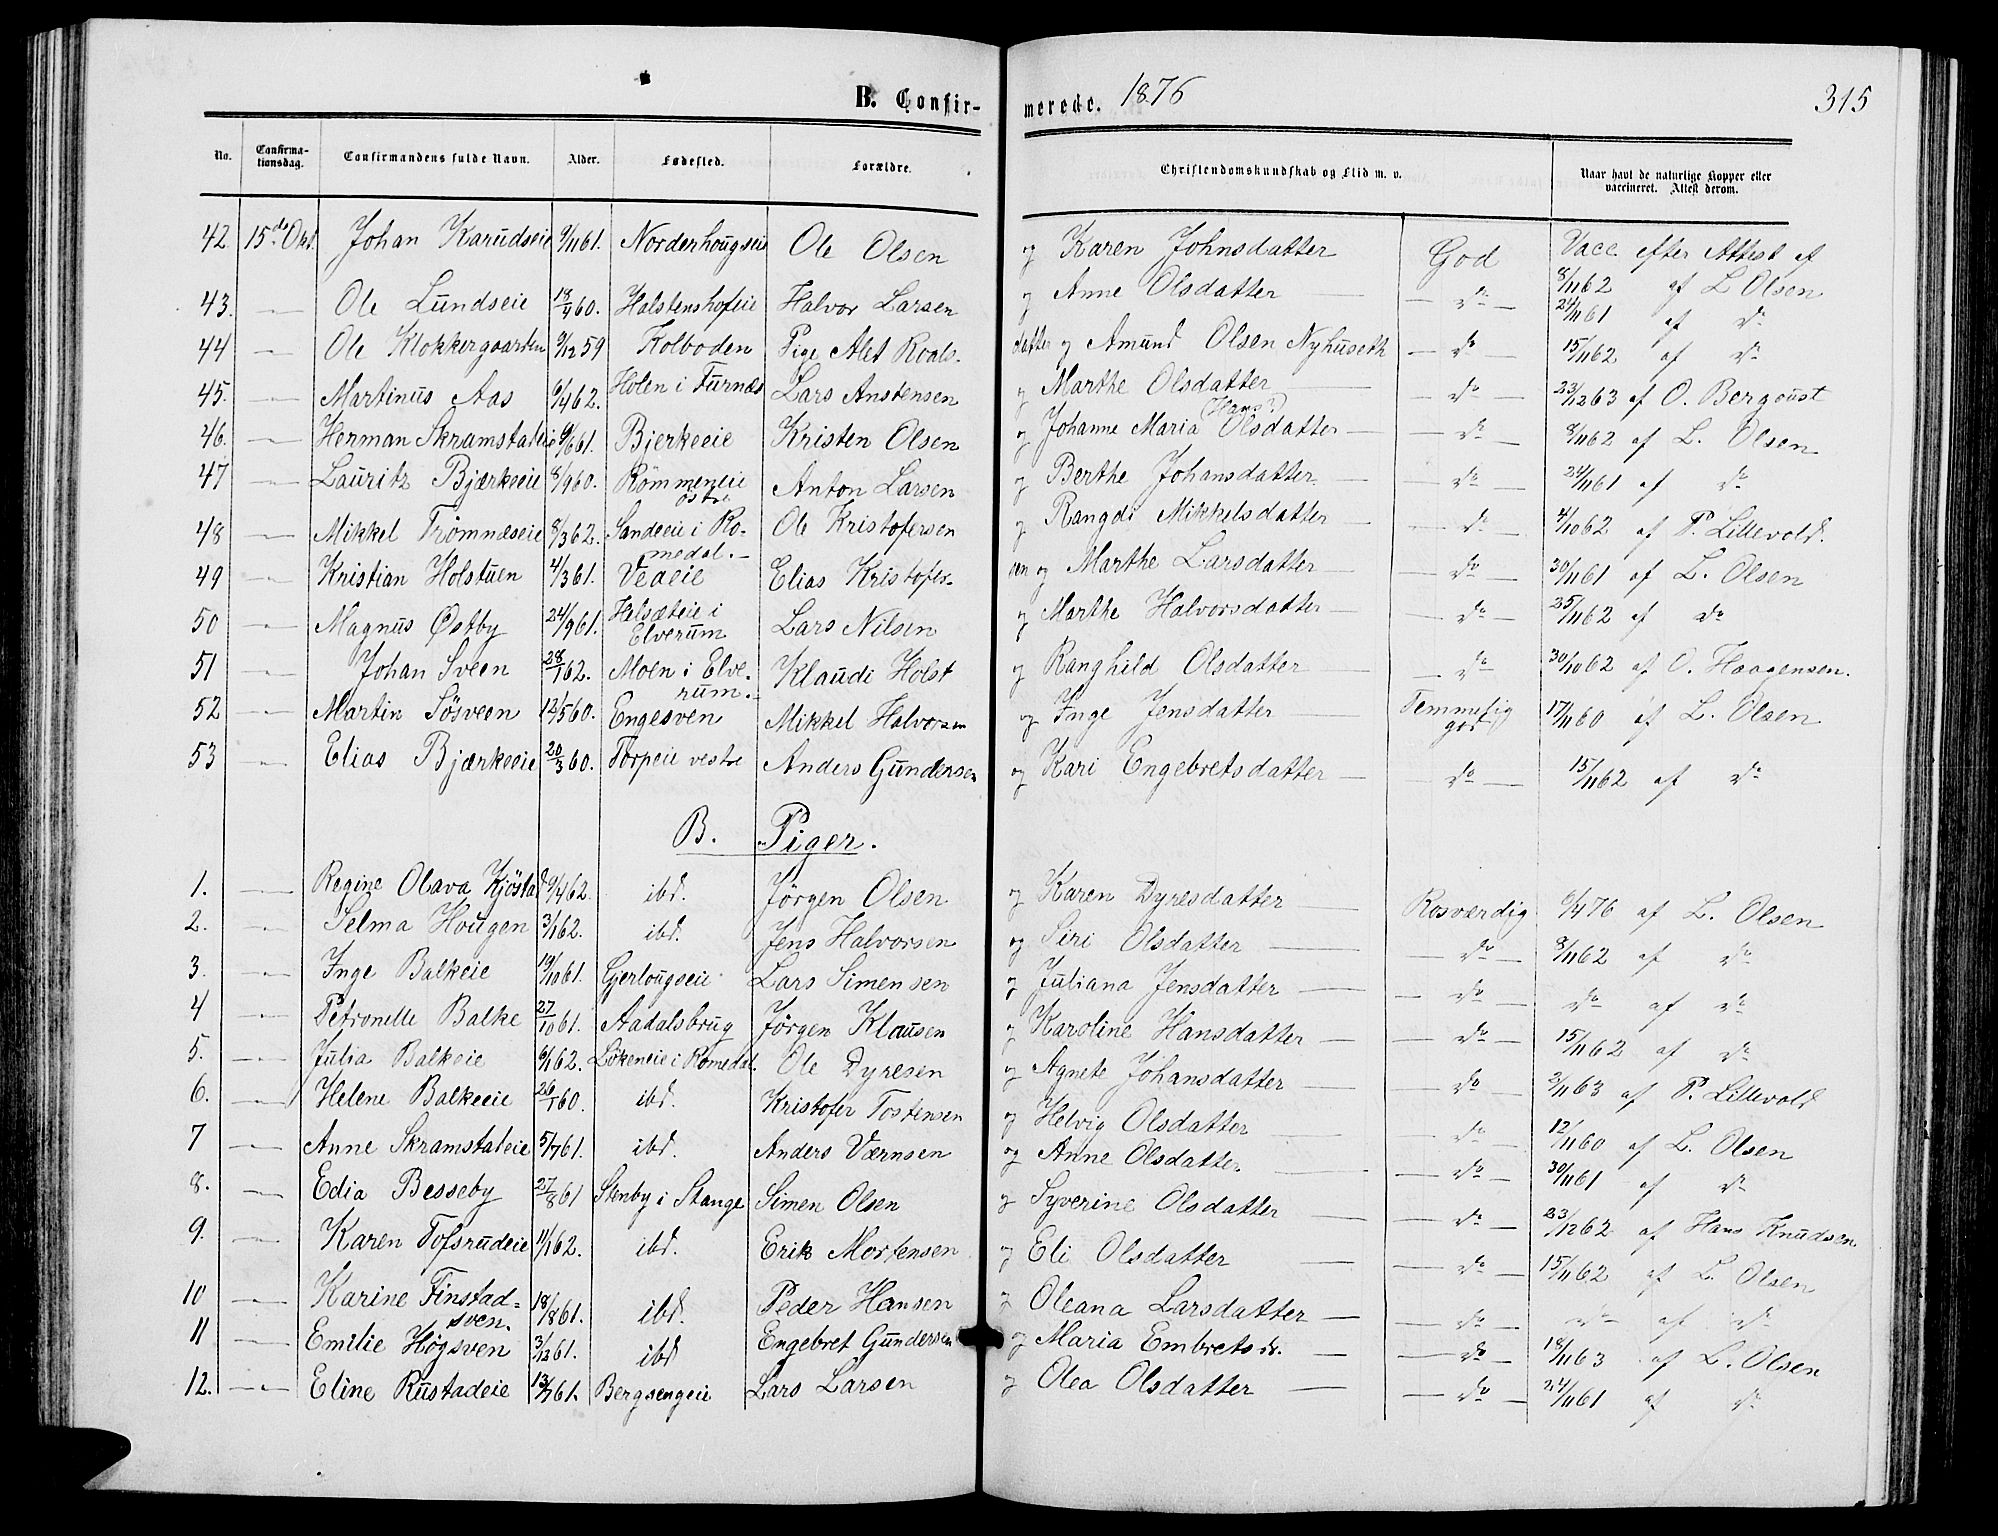 B. Confirmerede. 1876 315
No. Confirmationsdag. Confirmandens fulde Navn. Alder. Fødested. Forældre. Christendomskundskab og Flid m. v. Naar havt de naturlige Kopper eller vaccineret. Attest derom.
42 15de Okt. Johan Karudseie 9/11 61. Norderhougseie Ole Olsen og Karen Johnsdatter God Vacc. efter Attest af 8/11 62 af L. Olsen
43. —"— Ole Lundseie 18/4 60. Halstenshofeie Halvor Larsen og Anne Olsdatter — do — 24/11 61 af do
44 —"— Ole Klokkergaarden 9/12 59 Kolboden Pige Alet Roalsdatter og Amund Olsen Nyhuseth — do — 15/11 62 af do
45. —"— Martinus Aas 6/4 62. Holen i Furnæs Lars Anstensen og Marthe Olsdatter — do — 23/12 63 af O. Bergoust
46. —"— Herman Skramstaleie 9/6 61. Bjerkeeie Kristen Olsen og Johanne Maria (Hans?) Olsdatter — do — 8/11 62 af L. Olsen
47 —"— Lauritz Bjærkeeie 8/9 60. Rømmeneie østre Anton Larsen og Berthe Johansdatter — do — 24/11 61 af do
48 —"— Mikkel Trømnæseie 8/3 62. Sandeeie i Romedal. Ole Kristofersen og Rangdi Mikkelsdatter — do — 4/10 62 af P. Lillevold.
49 —"— Kristian Holstuen 4/3 61. Veaeie Elias Kristofersen og Marthe Larsdatter — do — 30/11 61 af L. Olsen
50 —"— Magnus Østby 24/9 61. Halsæteie i Elverum Lars Nilsen og Marthe Halvorsdatter — do — 25/11 62 af do
51 —"— Johan Sveen 28/1 62. Moen i Elverum. Klaudi Holst og Ranghild Olsdatter — do — 30/10 62 af O. Haagensen.
52 —"— Martin Søsveen 12/5 60. Engesven Mikkel Halvorsen og Inge Jensdatter Temmelig god 17/11 60 af L. Olsen
53 —"— Elias Bjærkeeie 20/3 60. Torpeie vestre Anders Gundersen og Kari Engebretsdatter — do — 15/11 62 af do
B. Piger.
1. —"— Regine Olava Kjøstad 9/4 62. ibd. Jørgen Olsen og Karen Dyresdatter Rosværdig 6/4 76 af L. Olsen
2. —"— Selma Hougen 3/1 62. ibd. Jens Halvorsen og Siri Olsdatter — do — 8/11 62 af do
3. —"— Inge Balkeie 19/10 61. Gjerlougseie Lars Simensen og Juliana Jensdatter — do — do af do
4 —"— Petronelle Balke 27/10 61. Aadalsbrug Jørgen Klausen og Karoline Hansdatter — do — 15/11 62 af do
5. —"— Julia Balkeie 6/1 62. Løkeneie i Romedal. Ole Dyresen og Agnete Johansdatter — do — 2/11 63 af P. Lillevold
6. —"— Helene Balkeeie 26/1 60. ibd. Kristofer Tostensen og Helvig Olsdatter — do — 12/11 60 af L. Olsen
7 —"— Anne Skramstaleie 5/7 61. ibd. Anders Værnsen og Anne Olsdatter — do — 30/11 61 af do
8. —"— Edia Besseby 27/8 61 Stenby i Stange Simen Olsen og Syverine Olsdatter — do — 23/12 62 af Hans Knudsen
9. —"— Karen Tofsrudeie 11/1 62. ibd. Erik Mortensen og Eli Olsdatter — do — 15/11 62 af L. Olsen
10 —"— Karine Finstadsven. 18/8 61. ibd. Peder Hansen og Oleana Larsdatter — do — do af do
11 —"— Emilie Høgsven 3/12 61. ibd Engebret Gundersen og Maria Embretsdr. — do — 18/11 63 af L. Olsen
12. —"— Eline Rustadeie 13/7 61. Bergsengeie Lars Larsen og Olea Olsdatter — do — 24/11 61 af do